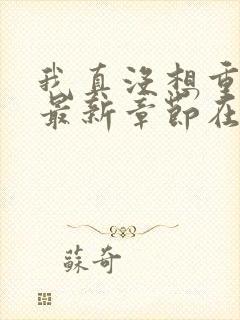 我真没想重
最新章节在
蘇奇